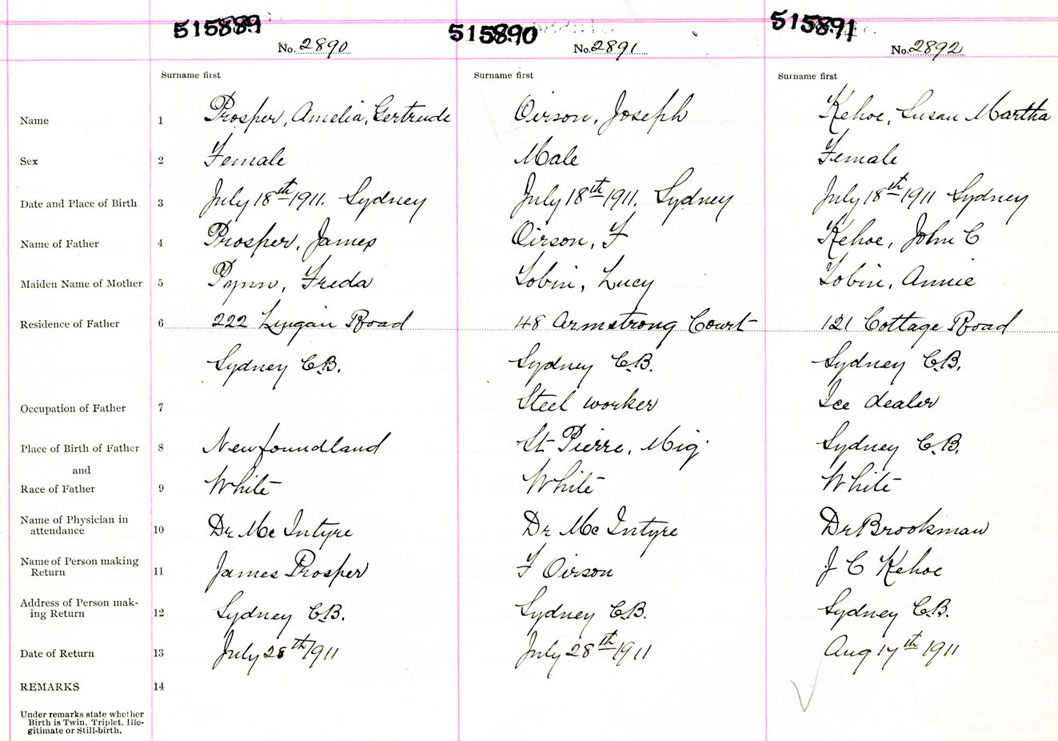 515889 515890 515891
No. 2890 No. 2891 No. 2892
Surname first Surname first Surname first
Name 1 Prosper, Amelia, Gertrude Oirson, Joseph Kehoe, Susan Martha
Sex 2 Female Male Female
Date and Place of Birth 3 July 18th 1911. Sydney July 18th 1911. Sydney July 18th 1911 Sydney
Name of Father 4 Prosper, James Oirson, F Kehoe, John C
Maiden Name of Mother 5 Pynn, Freda Tobin, Lucy Tobin, Annie
Residence of Father 6 222 Lingan Road 48 Armstrong Court 121 Cottage Road
Sydney C.B. Sydney C.B. Sydney C.B.
Occupation of Father 7 Steel worker Ice dealer
Place of Birth of Father 8 Newfoundland St Pierre, Miq. Sydney C.B.
and
Race of Father 9 White White White
Name of Physician in
attendance 10 Dr Mc Intyre Dr Mc Intyre Dr Brookman
Name of Person making
Return 11 James Prosper F Oirson J C Kehoe
Address of Person mak-
ing Return 12 Sydney C.B. Sydney C.B. Sydney C.B.
Date of Return 13 July 28th 1911 July 28th 1911 Aug 17th 1911
REMARKS 14
Under remarks state whether
Birth is Twin, Triplet, Ille-
gitimate or Still-birth.